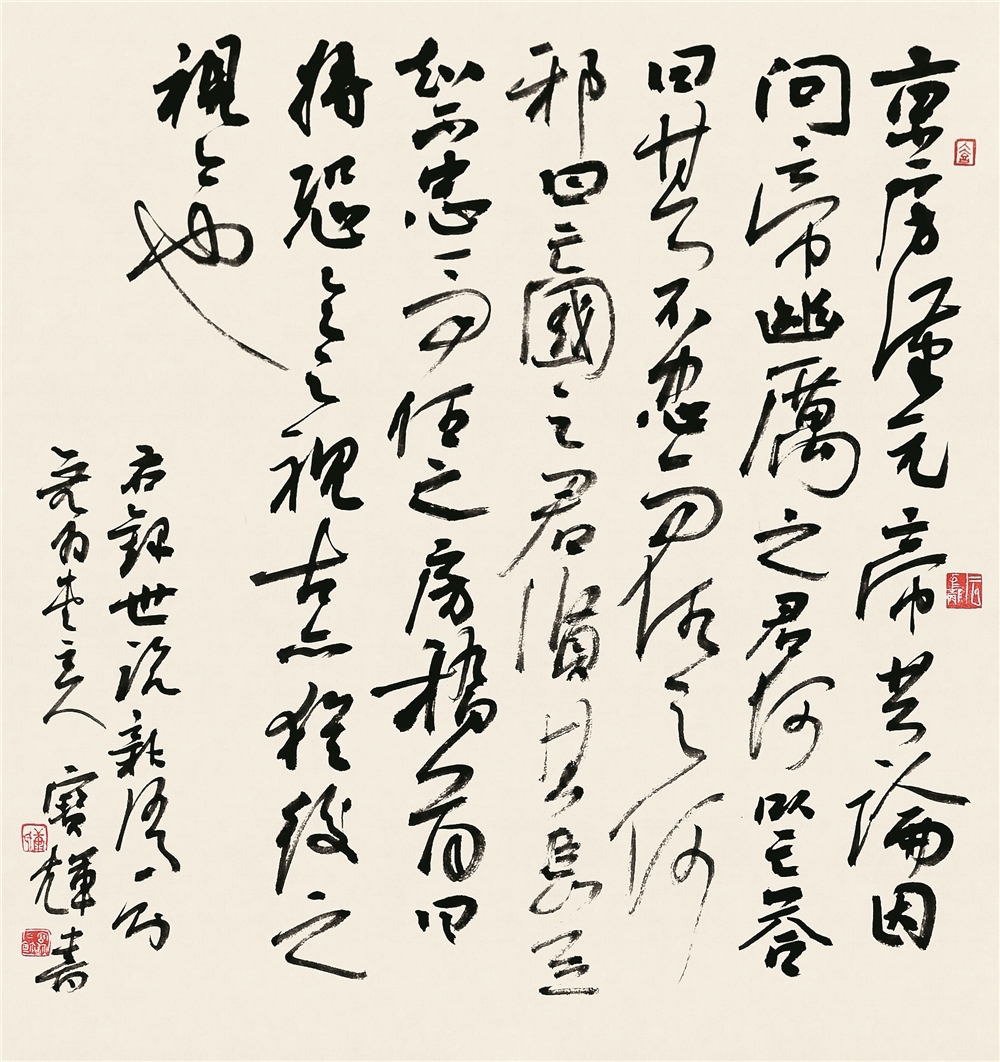 京房漢元帝共論因
問帝幽厲之君何以亡答
曰其人不忠而任之何
邪曰亡國之君賢其臣豈
知不忠而任之房稽首曰
將恐今之視古亦猶後之
視今也
右錄世說新語一則
無為主人寶輝書